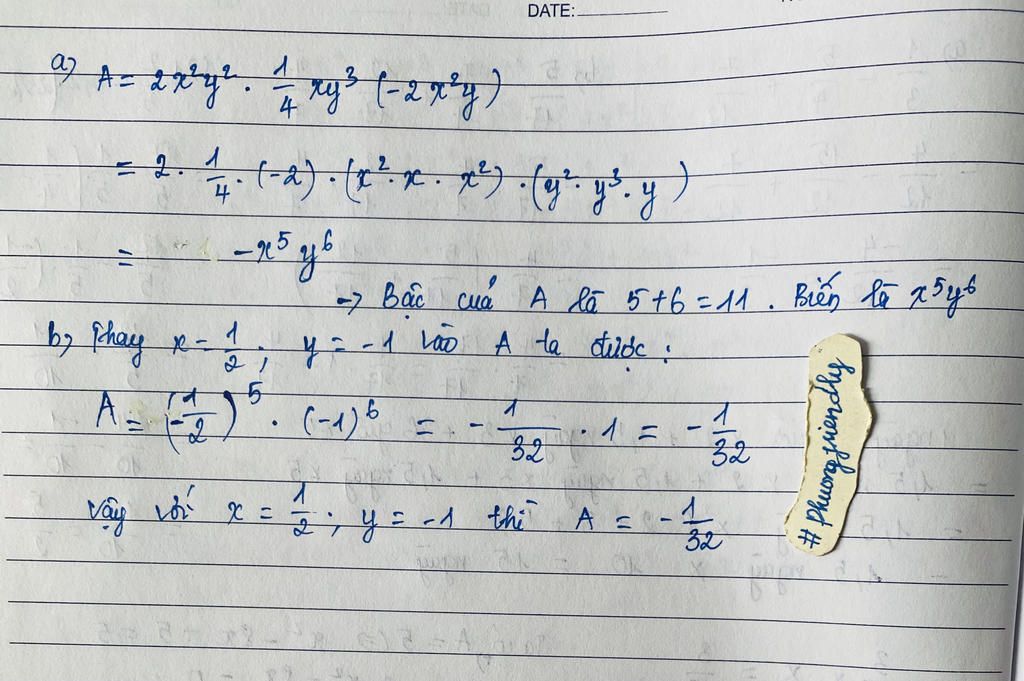 DATE:
a) A = 2x²y² · 1/4 xy³ (-2x²y)
= 2 · 1/4 · (-2) · (x² · x · x²) · (y² · y³ · y)
= -x⁵y⁶
→ Bậc cuả A là 5+6 = 11 . Biến là x⁵y⁶
b) Thay x = 1/2 ; y = -1 vào A ta được :
A = (-1/2)⁵ · (-1)⁶ = - 1/32 · 1 = - 1/32
Vậy với x = 1/2 ; y = -1 thì A = - 1/32
#phuongfriendly